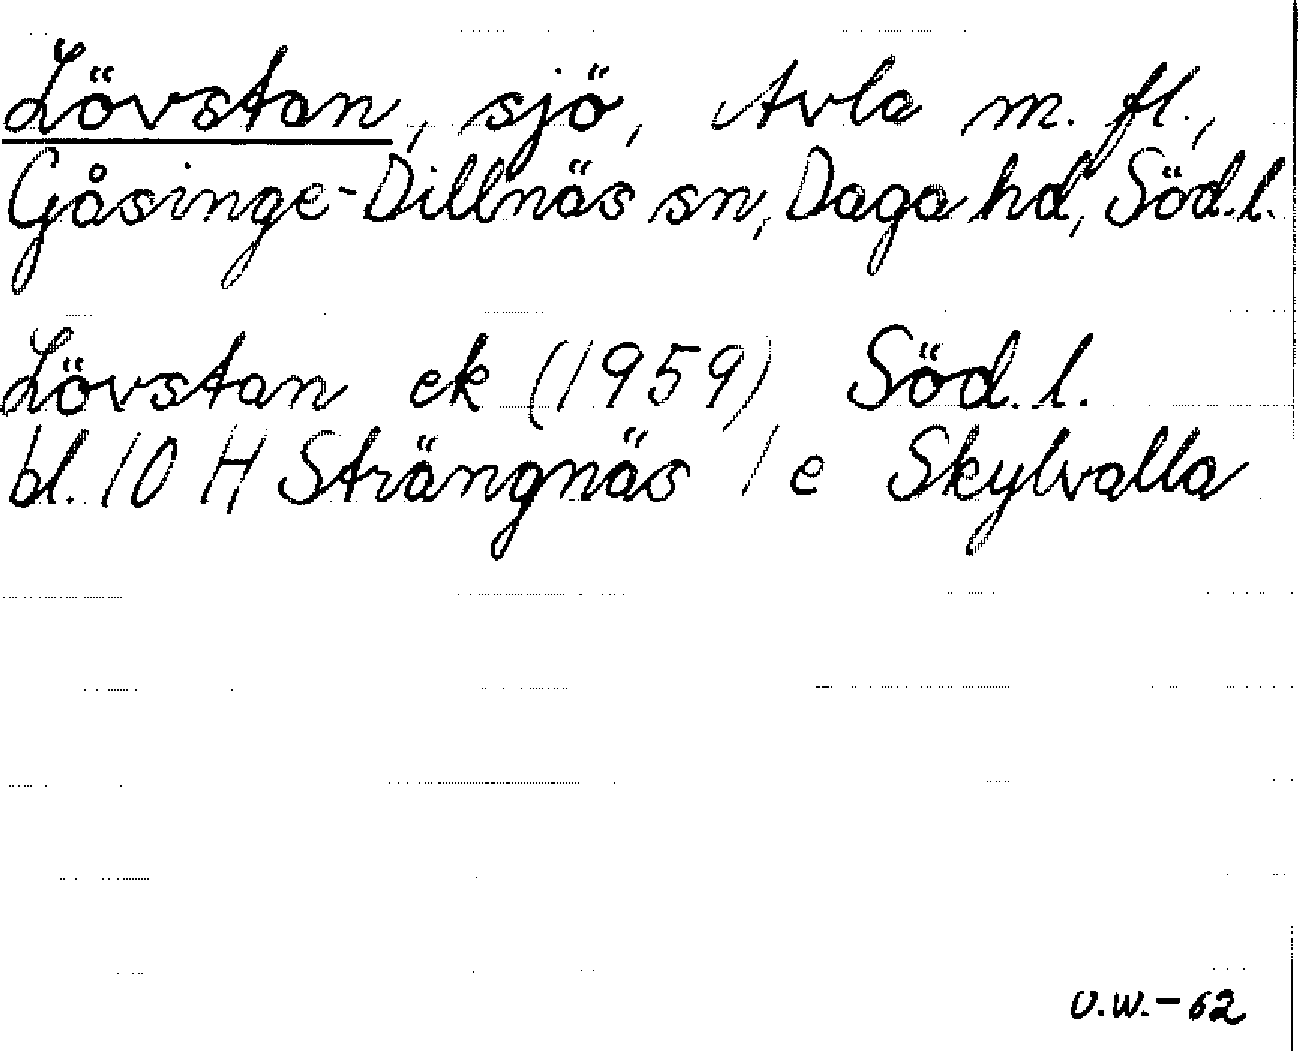 Lövstan, sjö, Avla m. fl.,
Gåsinge-Dillnäs sn, Daga hd, Söd.l.
Lövstan ek (1959) Söd.l.
bl. 10 H Strängnäs 1 e Skylvalla
U.W.-62